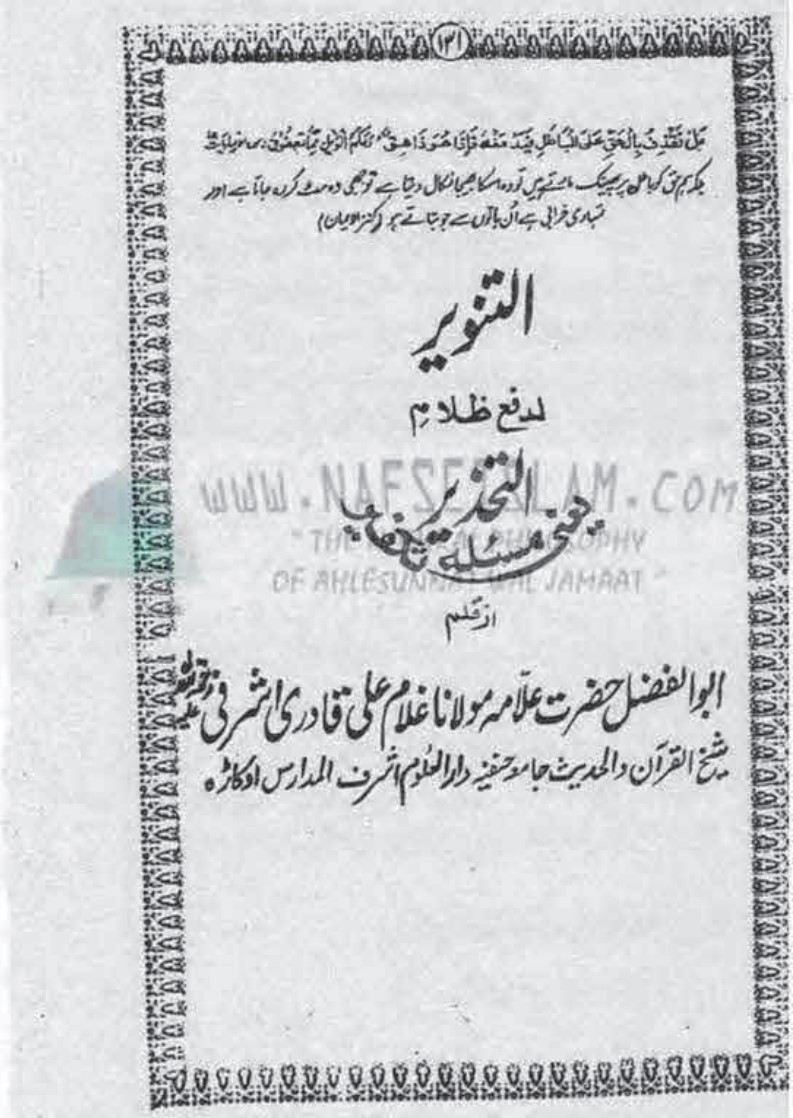 ۱۳۱
بَلْ نَقْذِفُ بِالْحَقِّ عَلَى الْبَاطِلِ فَيَدْمَغُهُ فَاِذَا هُوَ زَاهِقٌ وَلَكُمُ الْوَيْلُ مِمَّا تَصِفُوْنَ
بلکہ ہم حق کو باطل پر پھینک مارتے ہیں تو وہ اسکا بھیجا نکال دیتا ہے تو جبھی وہ مٹ کر رہ جاتا ہے اور
تمہاری خرابی ہے اُن باتوں سے جو بناتے ہو (کنز الایمان)
التنویر
لدفع ظلام
التحذیر
یعنی مسئلہ تکفیر
WWW.NAFSEISLAM.COM
"THE PHILOSOPHY
OF AHLESUNNAT WAL JAMAAT"
از قلم
ابوالفضل حضرت علامہ مولانا غلام علی قادری اشرفی
شیخ القرآن والحدیث جامعہ حنفیہ دارالعلوم اشرف المدارس اوکاڑہ